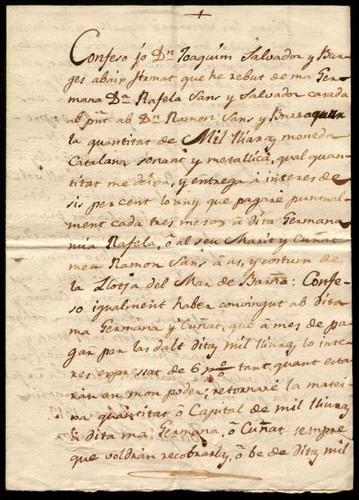 Confeso jo Dn Joaquim Salvador y Bur-
ges abaix firmat que he rebut de ma Ger
mana Da Rafela Sans y Salvador casada
ab pnt ab Dn Ramon Sans y
la quantitat de Mil lliuras moneda
Catalana sonant y metallica, qual quan-
titat me deixa, y entrega à interes de
sis per cent lo any que pagaré puntual
ment cada tres mesos à dita Germana
mia Rafela, ô al seu Marit y Cuñat
meu Ramon Sans y contum de
la Llotja del Mar de Barña: Confe-
so igualment haber convingut ab dita
ma Germana y Cuñat, que à mes de pa-
gar per las dalt ditas mil lliuras lo inte
res expressat de 6 p% tant, quant esta
ran en mon poder; retornaré la matei-
xa quantitat ô Capital de mil lliuras
à dita ma Germana, ô Cuñat sempre
que voldrán recobrarlas, ô be de ditas mil